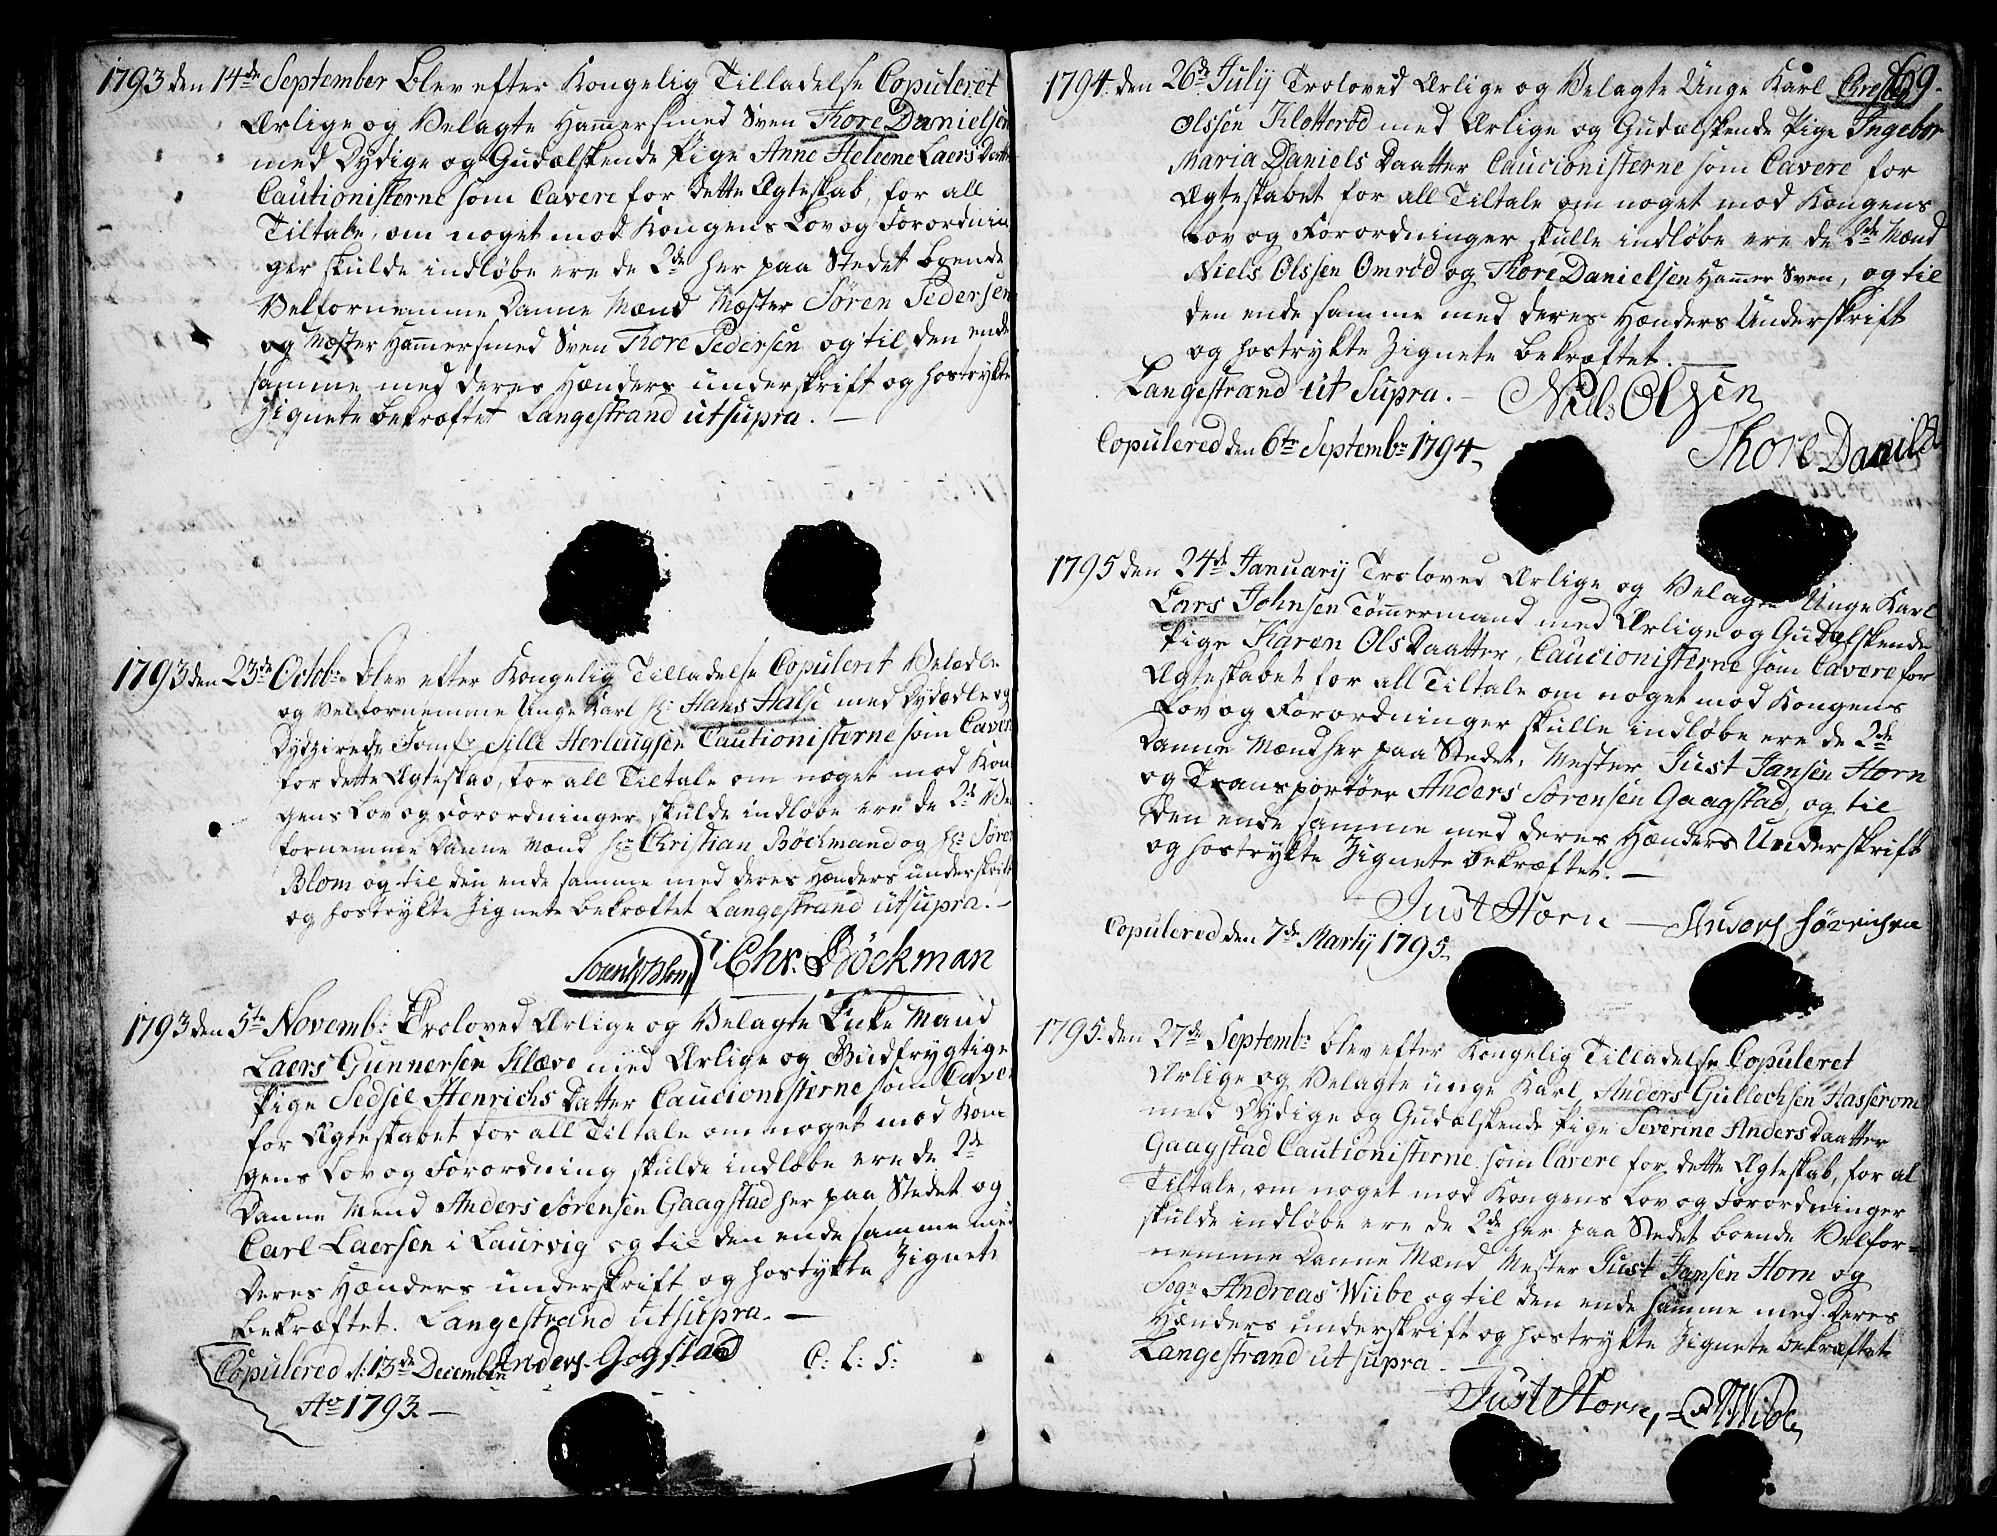 1793 den 14de September Blev efter Kongelig Tilladelse Copuleret
Ærlige og Velagte Hamersmed Sven Thore Danielsen
med Dydige og Gudælskende Pige Anne Heleene Laers Datter
Cautionisterne som Cavere for dette Ægteskab, for all
Tiltale, om noget mod Kongens Lov og Forordnin
ger skulde indløbe ere de 2de her paa Stedet boende
Velfornemme Danne Mænd Mæster Sören Pedersen
og Mæster Hamersmed Sven Thore Pedersen og til den ende
samme med deres Hænders underskrift og hostrykte
Zignete bekræftet Langestrand ut supra. —
1793 den 23de Octobr: Blev efter Kongelig Tilladelse Copulerit Velædle
og Velfornemme Unge Karl Hr: Hans Halse med Dydædle og
Dydzirede Jomfr Sille Herleugsen Cautionisterne som Cavere
for dette Ægteskab, for all Tiltale om noget mod Kon
gens Lov og Forordninger skulde indløbe ere de 2de Vel
fornemme Danne Mænd Hr: Christian Böckmand og Hr: Sören
Blom og til den ende samme med deres Hænders underskrift
og hostrykte Zignete bekræftet Langestrand ut supra. —
Chr. Böckman
1793 den 5te Novemb: Troloved Ærlige og Velagte Enke Mand
Laers Gunnersen Klæve med Ærlige og Gudfrygtige
Pige Sedsel Henrichs Datter Caucionisterne som Cavere
for Ægteskabet for all Tiltale om noget mod Kon
gens Lov og Forordning skulde indløbe ere de 2de
Danne Mend Anders Sörensen Gaagstad her paa Stedet og
Carl Laersen i Laurvig og til den ende samme med
Deres Hænders underskrift og hostykte Zignete
bekræftet. Langestrand ut supra. —
Copulered d: 13de December Anders. Gogstad C: L: S:
Ao 1793. —
69.
1794. den 26de July Troloved Ærlige og Velagte Unge Karl
Olssen Klotteröd med Ærlige og Gudælskende Pige Ingebor
Maria Daniels Daatter Caucionisterne som Cavere for
Ægteskabet for all Tiltale om noget mod Kongens
Lov og Forordninger skulle indløbe ere de 2de Mænd
Niels Olssen Omröd og Thore Danielsen Hamer Sven, og til
den ende samme med deres Hænders Underskrift
og hostrykte Zignete bekræftet. —
Langestrand ut Supra. — Niels Olsen
Copulered den 6te Septembr 1794. Thore Danilsen
1795 den 24de January Troloved Ærlige og Velagte Unge Karl
Lars Johnsen Tömmermand med Ærlige og Gudælskende
Pige Karen Ols Daatter, Caucionisterne som Cavere for
Ægteskabet for all Tiltale om noget mod Kongens
Lov og Forordninger skulle indløbe ere de 2de
Danne Mænd her paa Stedet, Mester Just Jansen Horn
og Transportöer Anders Sörensen Gaagstad, og til
Den ende samme med deres Hænders Underskrift
og hostrykte Zignete bekræftet. —
Just Horn — Anders Sörensen
Copulered den 7de Marty 1795.
1795. den 27de Septembr blev efter Kongelig Tilladelse Copuleret
Ærlige og Velagte unge Karl, Anders Gullechsen Hasserom
med Dydige og Gudælskende Pige Severine Anders Daatter
Gaagstad Cautionisterne som Cavere for dette Ægteskab, for al
Tiltale, om noget mod Kongens Lov og Forordninger
skulde indløbe ere de 2de her paa Stedet boende Velfor=
nemme Danne Mænd Mester Just Jansen Horn og
Sogr Andreas Wiibe og til den ende samme med Deres
Hænders underskrift og hostrykte Zignete bekræftet
Langestrand ut supra. —
Just Horn, Wibe